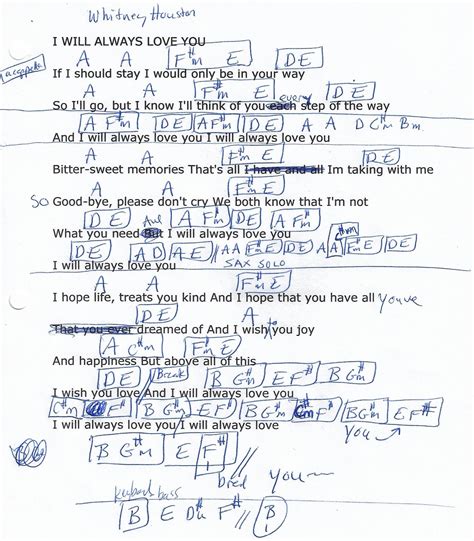 Whitney Houston
I WILL ALWAYS LOVE YOU
acappella A A F#m E D E
If I should stay I would only be in your way
A A F#m E every D E
So I'll go, but I know I'll think of you each step of the way
A F#m D E A F#m D E A A D C#m Bm
And I will always love you I will always love you
A A F#m E D E
Bitter-sweet memories That's all I have and all Im taking with me
A A F#m E
SO Good-bye, please don't cry We both know that I'm not
D E And A F#m D E A F#m
What you need But I will always love you
D E A D A E // A A F#m E D E A A F#m E D E
I will always love you SAX SOLO
A A F#m E
I hope life, treats you kind And I hope that you have all you've
D E A to
That you ever dreamed of And I wish you joy
A C#m F#m E
And happiness But above all of this
D E // Break B G#m E F# B G#m
I wish you love And I will always love you
C#m F# B G#m E F# B G#m F# B G#m E F#
I will always love you I will always love
You
B G#m E F#
bred You
keyboard bass
B E D# F# // B